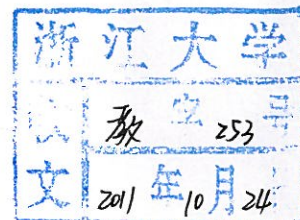 浙江大学
收 教字253号
文 2011年10月24